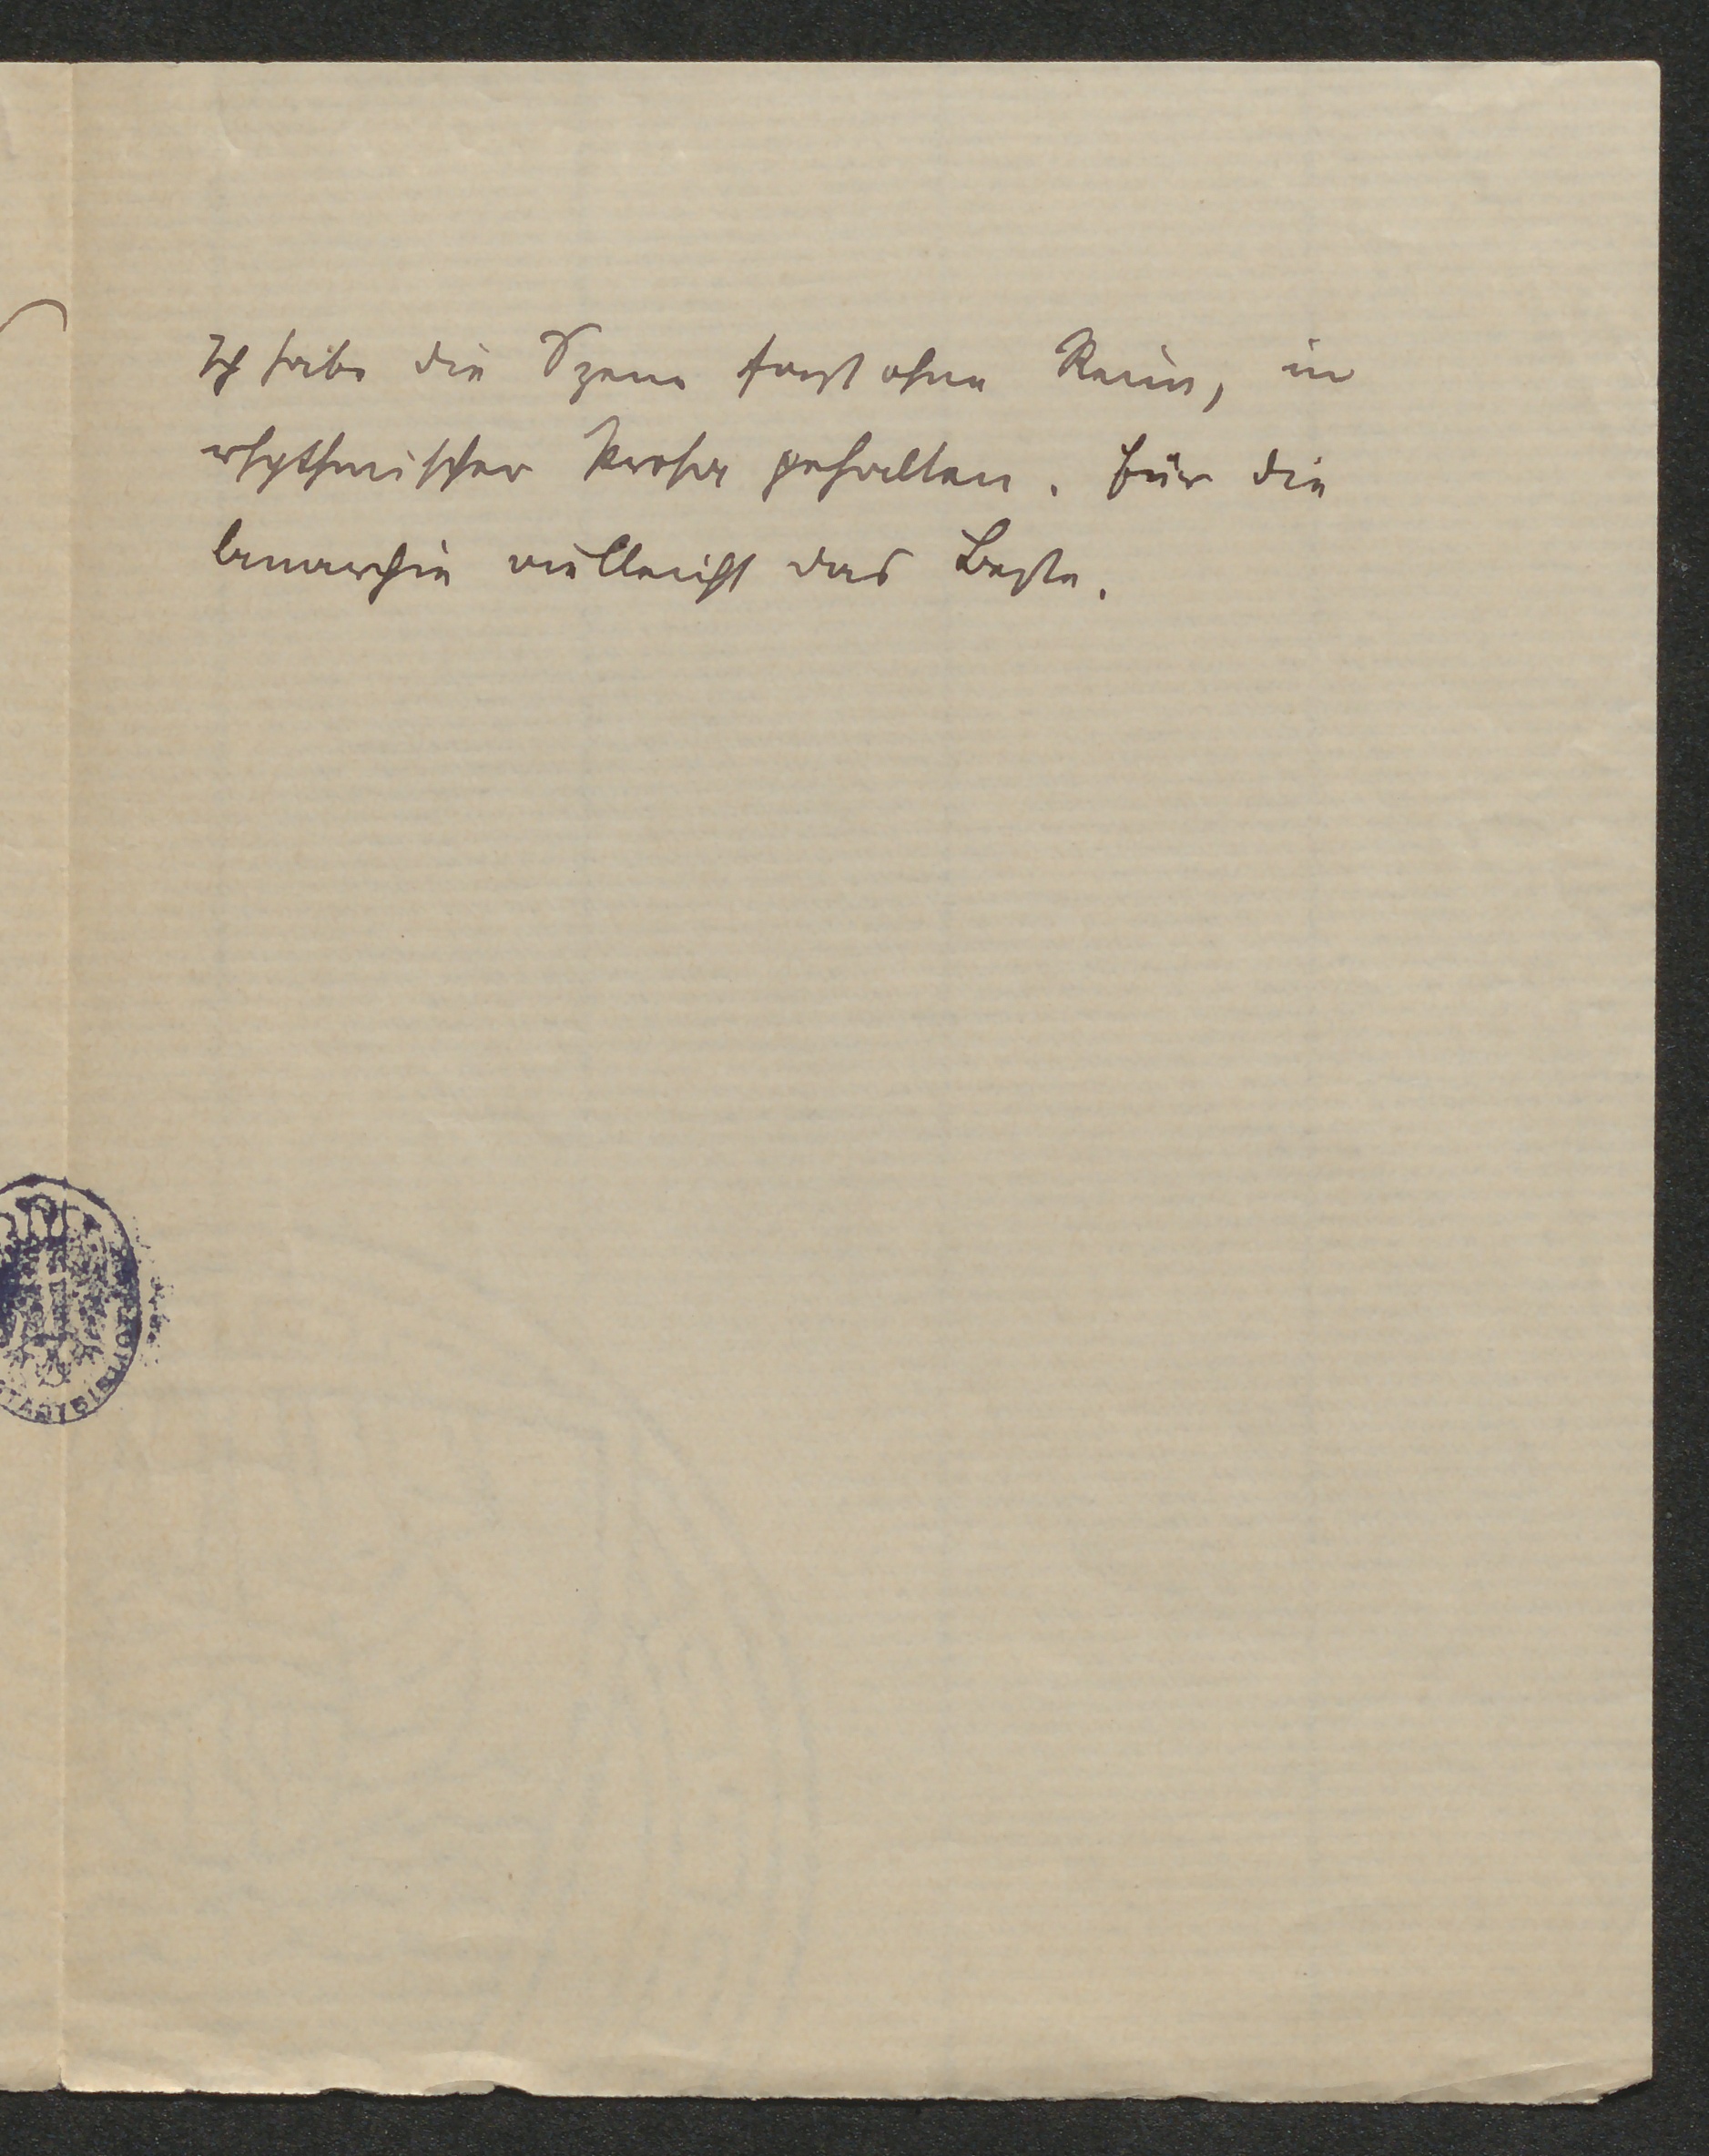 Ich habe die Szene fast ohne Reim, in
rhythmischer Prosa gehalten. Für die
Anarchie vielleicht das Beste.